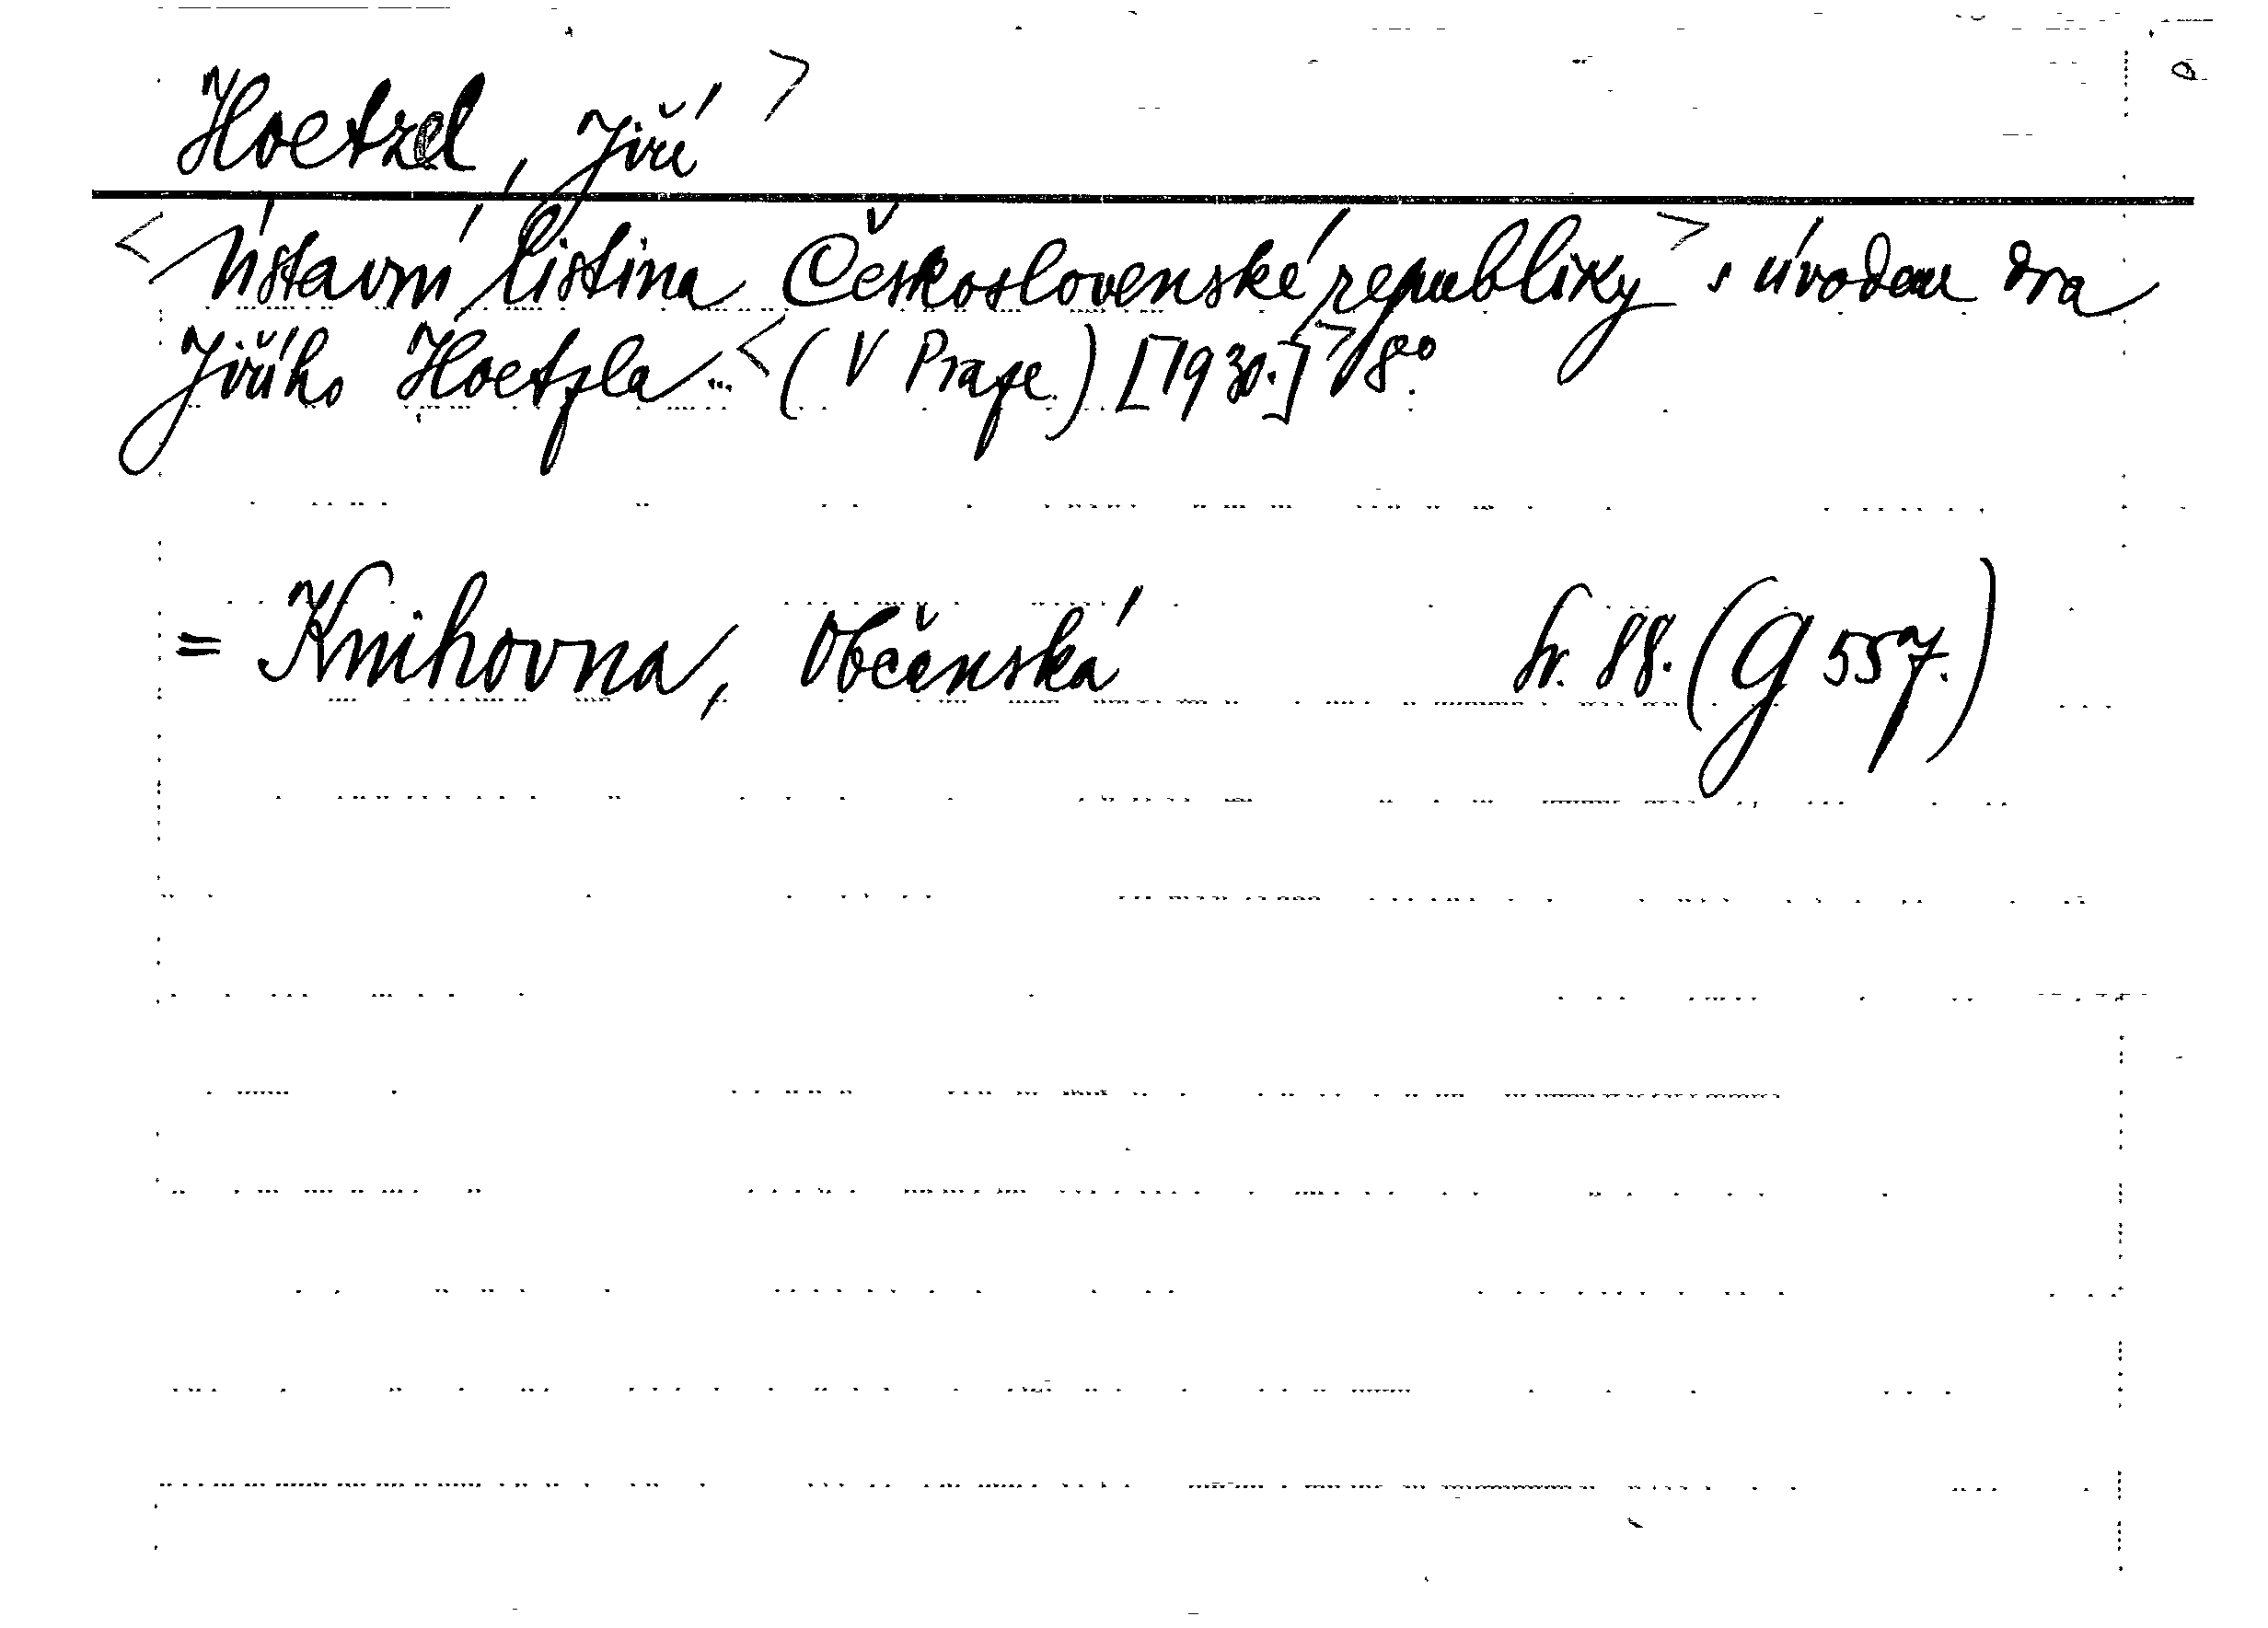 Hoetzel, Jiří >
< Ústavní listina Československé republiky > s úvodem dra
Jiřího Hoetzla... < (V Praze) [1930.] > 8°.
= Knihovna, Občanská Sv. 88. (G 557.)